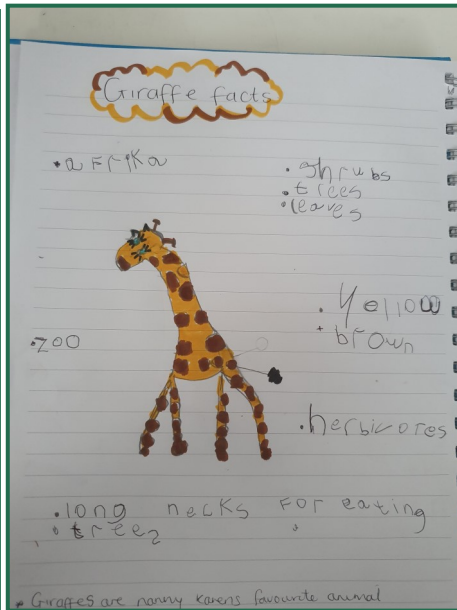 Giraffe facts
• afrika
• shrubs
• trees
• leaves
• Yellow
• brown
• zoo
• herbivores
• long necks for eating
• tree2
* Giraffes are nanny Karens favourite animal